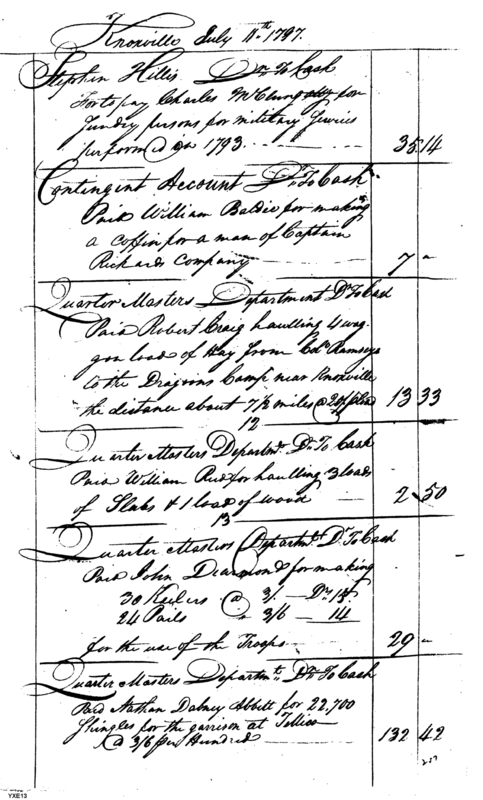 Knoxville July 11th 1797.
Stephen Hillis Dr. To Cash
For to pay Charles McClung for
Sundry persons for military Servies
perform'd in 1793. 35.14
Contingent Account Dr. To Cash
Paid William Baldie for making
a coffin for a man of Captain
Rickards Company 7 "
Quarter Masters Department Dr To Cash
Paid Robert Craig haulling 4 wag-
gon loads of Hay from Col. Ramseys
to the Dragoons Camp near Knoxville
the distance about 7½ miles @ 13 33
12
Quarter Masters Departmt. Dr. To Cash
Paid William Reed for haulling 3 loads
of Slabs & 1 load of wood 2.50
13
Quarter Masters Departmt. Dr To Cash
Paid John Dearmond for making
30 Keelers @ 3/. Drs 15
24 Pails " 3/6 14
for the use of the Troops 29 "
Quarter Masters Departmt. Dr. To Cash
Paid Nathan Dabney Abbitt for 22,700
Shingles for the garrison at Tellico
@ 3/6 per Hundred 132 42
YXE13